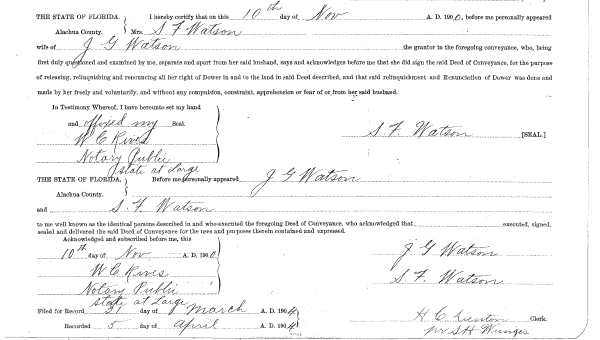 THE STATE OF FLORIDA, I hereby certify that on this 10th day of Nov A. D. 1900, before me personally appeared
Alachua County. Mrs. S F Watson
wife of J G Watson the grantor in the foregoing conveyance, who, being
first duly questioned and examined by me, separate and apart from her said husband, says and acknowledges before me that she did sign the said Deed of Conveyance, for the purpose
of releasing, relinquishing and renouncing all her right of Dower in and to the land in said Deed described, and that said relinquishment and Renunciation of Dower was done and
made by her freely and voluntarily, and without any compulsion, constraint, apprehension or fear of or from her said husband.
In Testimony Whereof, I have hereunto set my hand
and affixed my Seal.
W C Rives
Notary Public
State at Large
S. F. Watson [SEAL.]
THE STATE OF FLORIDA, Before me personally appeared J G Watson
Alachua County.
and S. F. Watson
to me well known as the identical persons described in and who executed the foregoing Deed of Conveyance, who acknowledged that executed, signed,
sealed and delivered the said Deed of Conveyance for the uses and purposes therein contained and expressed.
Acknowledged and subscribed before me, this
10th day of Nov A. D. 1900
W C Rives
Notary Public
State at Large
J G Watson
S F Watson
Filed for Record 21 day of March A. D. 1904
Recorded 5 day of April A. D. 1904
H C Clerk.
pr S H